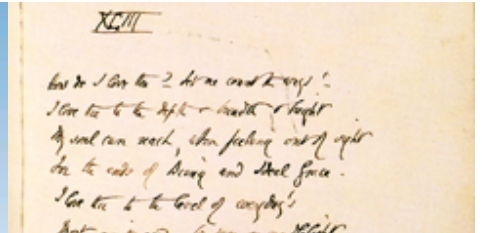 XLIII
How do I love thee? Let me count the ways!
I love thee to the depth & breadth & height
My soul can reach, when feeling out of sight
For the ends of Being and Ideal Grace.
I love thee to the level of everyday's
Most